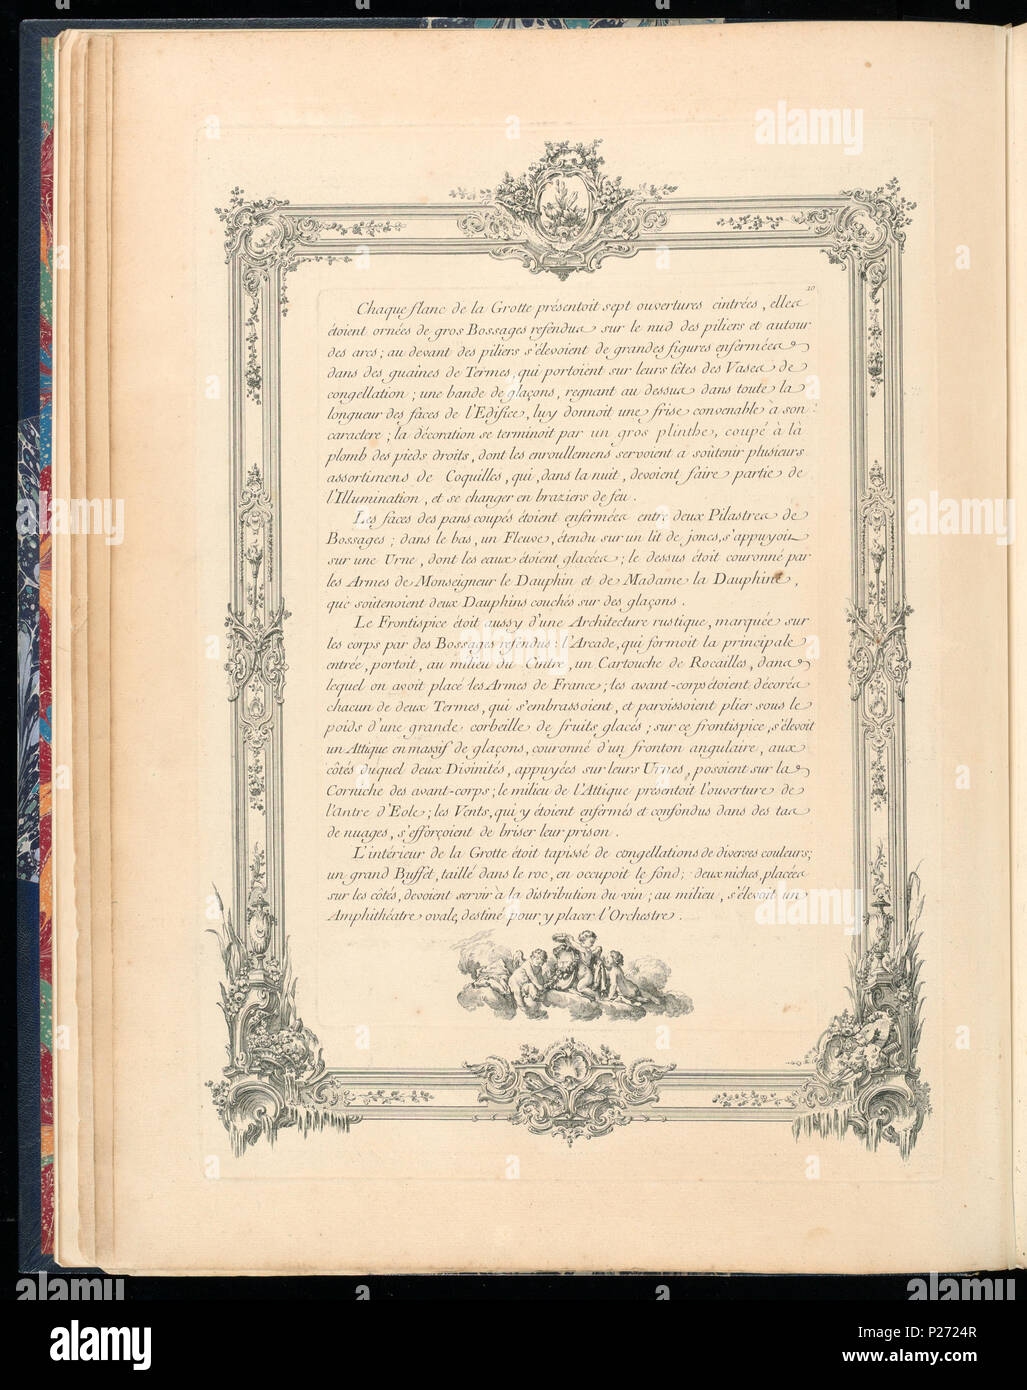 10
Chaque flanc de la Grotte présentoit sept ouvertures cintrées, elles
étoient ornées de gros Bossages refendus sur le nud des piliers et autour
des arcs; au devant des piliers s'élevoient de grandes figures enfermées
dans des guaines de Termes, qui portoient sur leurs têtes des Vases de
congellation; une bande de glaçons, regnant au dessus dans toute la
longueur des faces de l'Edifice, luy donnoit une frise convenable à son
caractere; la décoration se terminoit par un gros plinthe, coupé à là
plomb des pieds droits, dont les enroullemens servoient à soûtenir plusieurs
assortimens de Coquilles, qui, dans la nuit, devoient faire partie de
l'Illumination, et se changer en braziers de feu.
Les faces des pans coupés étoient enfermées entre deux Pilastres de
Bossages; dans le bas, un Fleuve, étendu sur un lit de joncs, s'appuyoit
sur une Urne, dont les eaux étoient glacées; le dessus étoit couronné par
les Armes de Monseigneur le Dauphin et de Madame la Dauphine,
que soûtenoient deux Dauphins couchés sur des glaçons.
Le Frontispice étoit aussy d'une Architecture rustique, marquée sur
les corps par des Bossages refendus: l'Arcade, qui formoit la principale
entrée, portoit, au milieu du Cintre, un Cartouche de Rocailles, dans
lequel on avoit placé les Armes de France; les avant-corps étoient décorés
chacun de deux Termes, qui s'embrassoient, et paroissoient plier sous le
poids d'une grande corbeille de fruits glacés; sur ce frontispice, s'élevoit
un Attique en massif de glaçons, couronné d'un fronton angulaire, aux
côtés duquel deux Divinités, appuyées sur leurs Urnes, posoient sur la
Corniche des avant-corps; le milieu de l'Attique présentoit l'ouverture de
l'antre d'Eole; les Vents, qui y étoient enfermés et confondus dans des tas
de nuages, s'efforçoient de briser leur prison.
L'intérieur de la Grotte étoit tapissé de congellations de diverses couleurs;
un grand Buffet, taillé dans le roc, en occupoit le fond; deux niches, placées
sur les côtés, devoient servir à la distribution du vin; au milieu, s'élevoit un
Amphithéatre ovale, destiné pour y placer l'Orchestre.
alamy
alamy
alamy
Image ID: P2724R
www.alamy.com